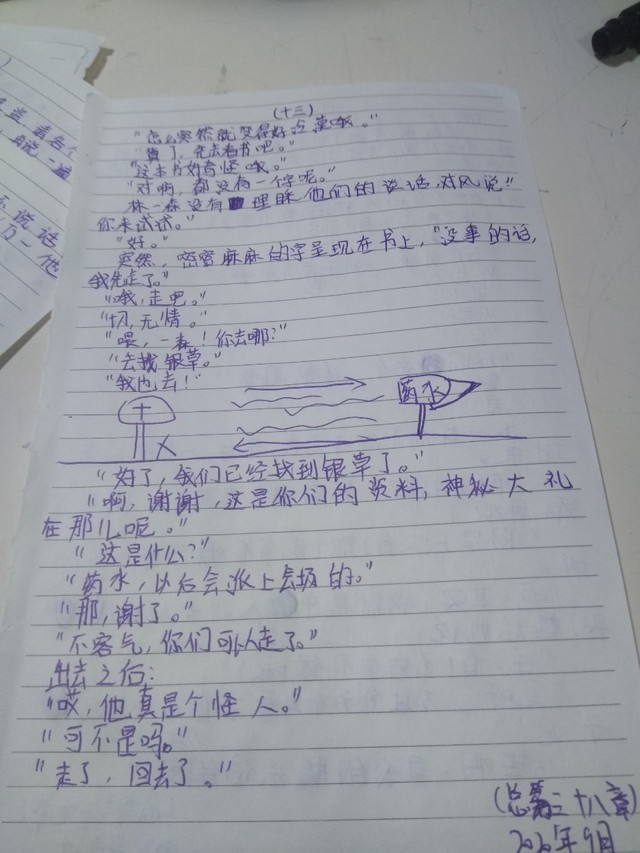 （十三）
“怎么突然就变得好点莫哦。”
“算了，先去看书吧。”
“这本书好奇怪哦。”
“对啊，都没有一个字呢。”
林一森没有理睬他们的谈话，对风说“
你来试试。”
“好。”
突然，密密麻麻的字呈现在书上，“没事的话，
我先走了。”
“哦，走吧。”
“切，无情。”
“喂，一森！你去哪？”
“去找银草。”
“我也去！”
药水
“好了，我们已经找到银草了。”
“啊，谢谢，这是你们的资料，神秘大礼
在那儿呢。”
“这是什么？”
“药水，以后会派上去场的。”
“那，谢了。”
“不客气，你们可以走了。”
出去之后：
“哎，他真是个怪人。”
“可不是吗。”
“走了，回去了。”
（总第二十八章）
2020年9月